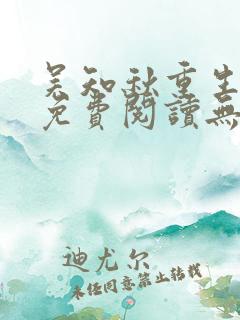 吴知秋重生
免費閱讀無
迪尤尔
未经同意禁止转载